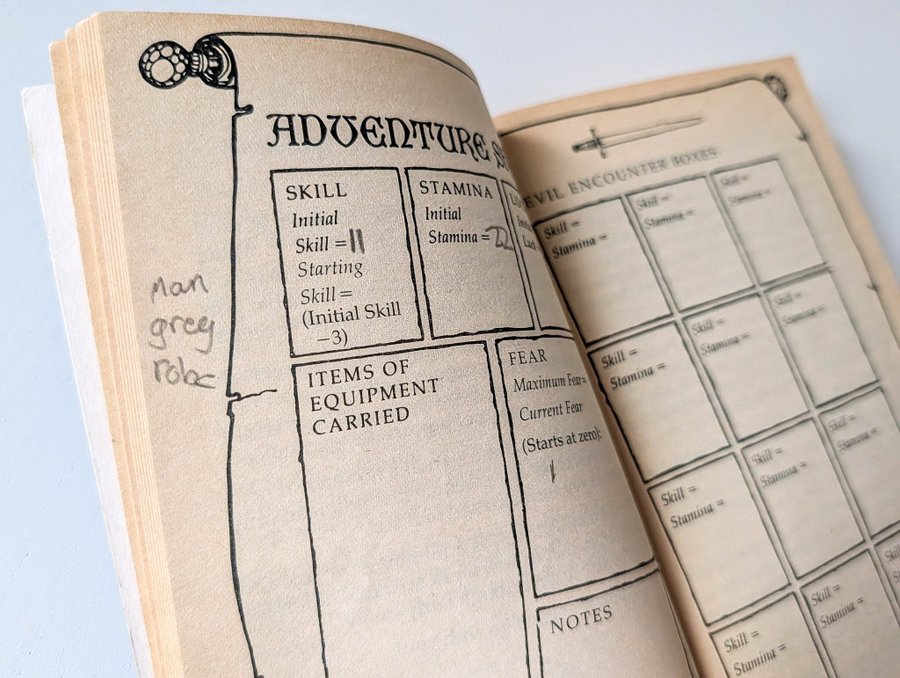 ADVENTURE
SKILL
Initial
Skill = 11
Starting
Skill =
(Initial Skill
–3)
STAMINA
Initial
Stamina = 22
man
grey
robe
ITEMS OF
EQUIPMENT
CARRIED
FEAR
Maximum Fear =
Current Fear
(Starts at zero):
1
NOTES
EVIL ENCOUNTER BOXES
Skill =
Stamina =
Skill =
Stamina =
Skill =
Stamina =
Skill =
Stamina =
Skill =
Stamina =
Skill =
Stamina =
Skill =
Stamina =
Skill =
Stamina =
Skill =
Stamina =
Skill =
Stamina =
Skill =
Stamina =